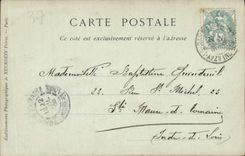 37
CARTE POSTALE
Ce côté est exclusivement réservé à l'Adresse
Mademoiselle Baptistine
22, Rue St Michel, 22
Ste Maure de Touraine
Indre et Loire
Etablissements Photographiques de NEURDEIN Frères. — Paris